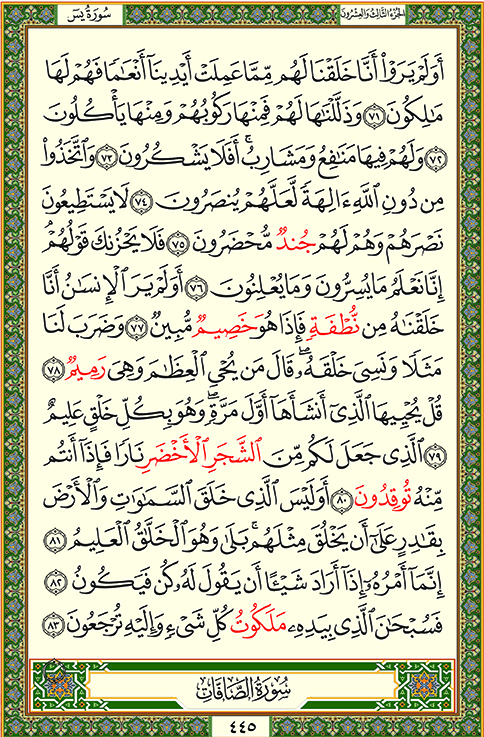 الجزء الثالث والعشرون
سورة يس
أَوَلَمْ يَرَوْا۟ أَنَّا خَلَقْنَا لَهُم مِّمَّا عَمِلَتْ أَيْدِينَآ أَنْعَٰمًا فَهُمْ لَهَا
مَٰلِكُونَ ٧١ وَذَلَّلْنَٰهَا لَهُمْ فَمِنْهَا رَكُوبُهُمْ وَمِنْهَا يَأْكُلُونَ
٧٢ وَلَهُمْ فِيهَا مَنَٰفِعُ وَمَشَارِبُ ۚ أَفَلَا يَشْكُرُونَ ٧٣ وَٱتَّخَذُوا۟
مِن دُونِ ٱللَّهِ ءَالِهَةً لَّعَلَّهُمْ يُنصَرُونَ ٧٤ لَا يَسْتَطِيعُونَ
نَصْرَهُمْ وَهُمْ لَهُمْ جُندٌ مُّحْضَرُونَ ٧٥ فَلَا يَحْزُنكَ قَوْلُهُمْ ۘ
إِنَّا نَعْلَمُ مَا يُسِرُّونَ وَمَا يُعْلِنُونَ ٧٦ أَوَلَمْ يَرَ ٱلْإِنسَٰنُ أَنَّا
خَلَقْنَٰهُ مِن نُّطْفَةٍ فَإِذَا هُوَ خَصِيمٌ مُّبِينٌ ٧٧ وَضَرَبَ لَنَا
مَثَلًا وَنَسِىَ خَلْقَهُۥ ۖ قَالَ مَن يُحْىِ ٱلْعِظَٰمَ وَهِىَ رَمِيمٌ ٧٨
قُلْ يُحْيِيهَا ٱلَّذِىٓ أَنشَأَهَآ أَوَّلَ مَرَّةٍ ۖ وَهُوَ بِكُلِّ خَلْقٍ عَلِيمٌ
٧٩ ٱلَّذِى جَعَلَ لَكُم مِّنَ ٱلشَّجَرِ ٱلْأَخْضَرِ نَارًا فَإِذَآ أَنتُم
مِّنْهُ تُوقِدُونَ ٨٠ أَوَلَيْسَ ٱلَّذِى خَلَقَ ٱلسَّمَٰوَٰتِ وَٱلْأَرْضَ
بِقَٰدِرٍ عَلَىٰٓ أَن يَخْلُقَ مِثْلَهُم ۚ بَلَىٰ وَهُوَ ٱلْخَلَّٰقُ ٱلْعَلِيمُ ٨١
إِنَّمَآ أَمْرُهُۥٓ إِذَآ أَرَادَ شَيْـًٔا أَن يَقُولَ لَهُۥ كُن فَيَكُونُ ٨٢
فَسُبْحَٰنَ ٱلَّذِى بِيَدِهِۦ مَلَكُوتُ كُلِّ شَىْءٍ وَإِلَيْهِ تُرْجَعُونَ ٨٣
سورة الصافات
٤٤٥